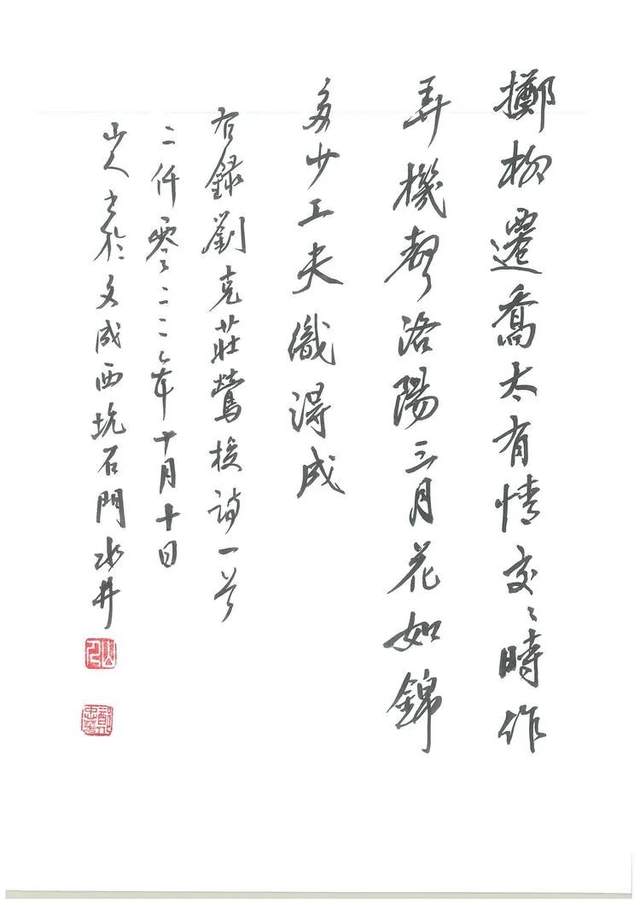 擲柳遷喬太有情交〻時作
弄機聲洛陽三月花如錦
多少工夫織得成
右錄劉克莊鶯梭詩一首
二仟零二二年十月十日
山人书於文成西坑石門水井
山人